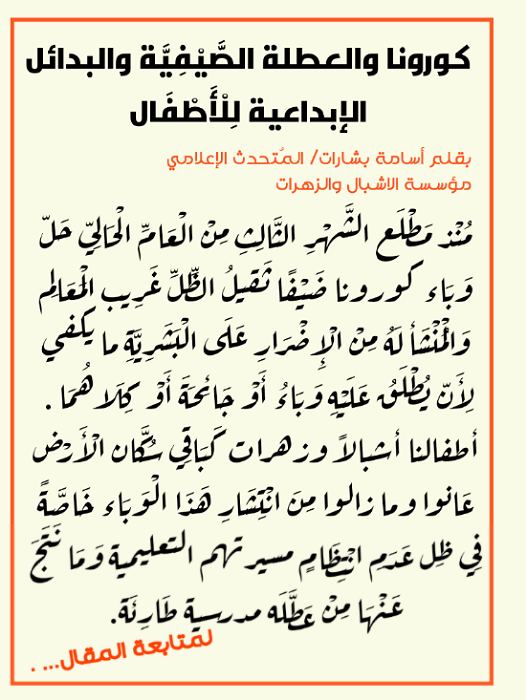 كورونا والعطلة الصَّيْفِيَّة والبدائل
الإبداعية لِلْأَطْفَال
بقلم أسامة بشارات/ المُتحدث الإعلامي
مؤسسة الاشبال والزهرات
مُنْذ مَطْلَع الشَّهْرِ الثَّالِثِ مِنْ الْعَامِّ الْحَالِيّ حَلّ
وَبَاء كورونا ضَيْفًا ثَقيلُ الظِّلِّ غَرِيب الْمَعَالِم
وَالْمَنْشَأ لَهُ مِنْ الإِضْرَارِ عَلَى الْبَشَرِيَّةِ ما يكفي
لِأَنّ يُطْلَقُ عَلَيْهِ وَبَاءُ أَوْ جَائحَةَ أَوْ كِلَاهُمَا .
أطفالنا أشبالاً وزهرات كَبَاقِي سُكَّان الْأَرْض
عَانوا وما زالوا مِنَ انْتِشَارِ هَذَا الْوَبَاء خَاصَّةً
فِي ظِل عَدَمِ انْتِظَامٍ مسيرتهم التعليمية وَمَا نَتَجَ
عَنْهَا مِنْ عَطَّلَه مدرسية طَارِئَة.
لمتابعة المقال... .